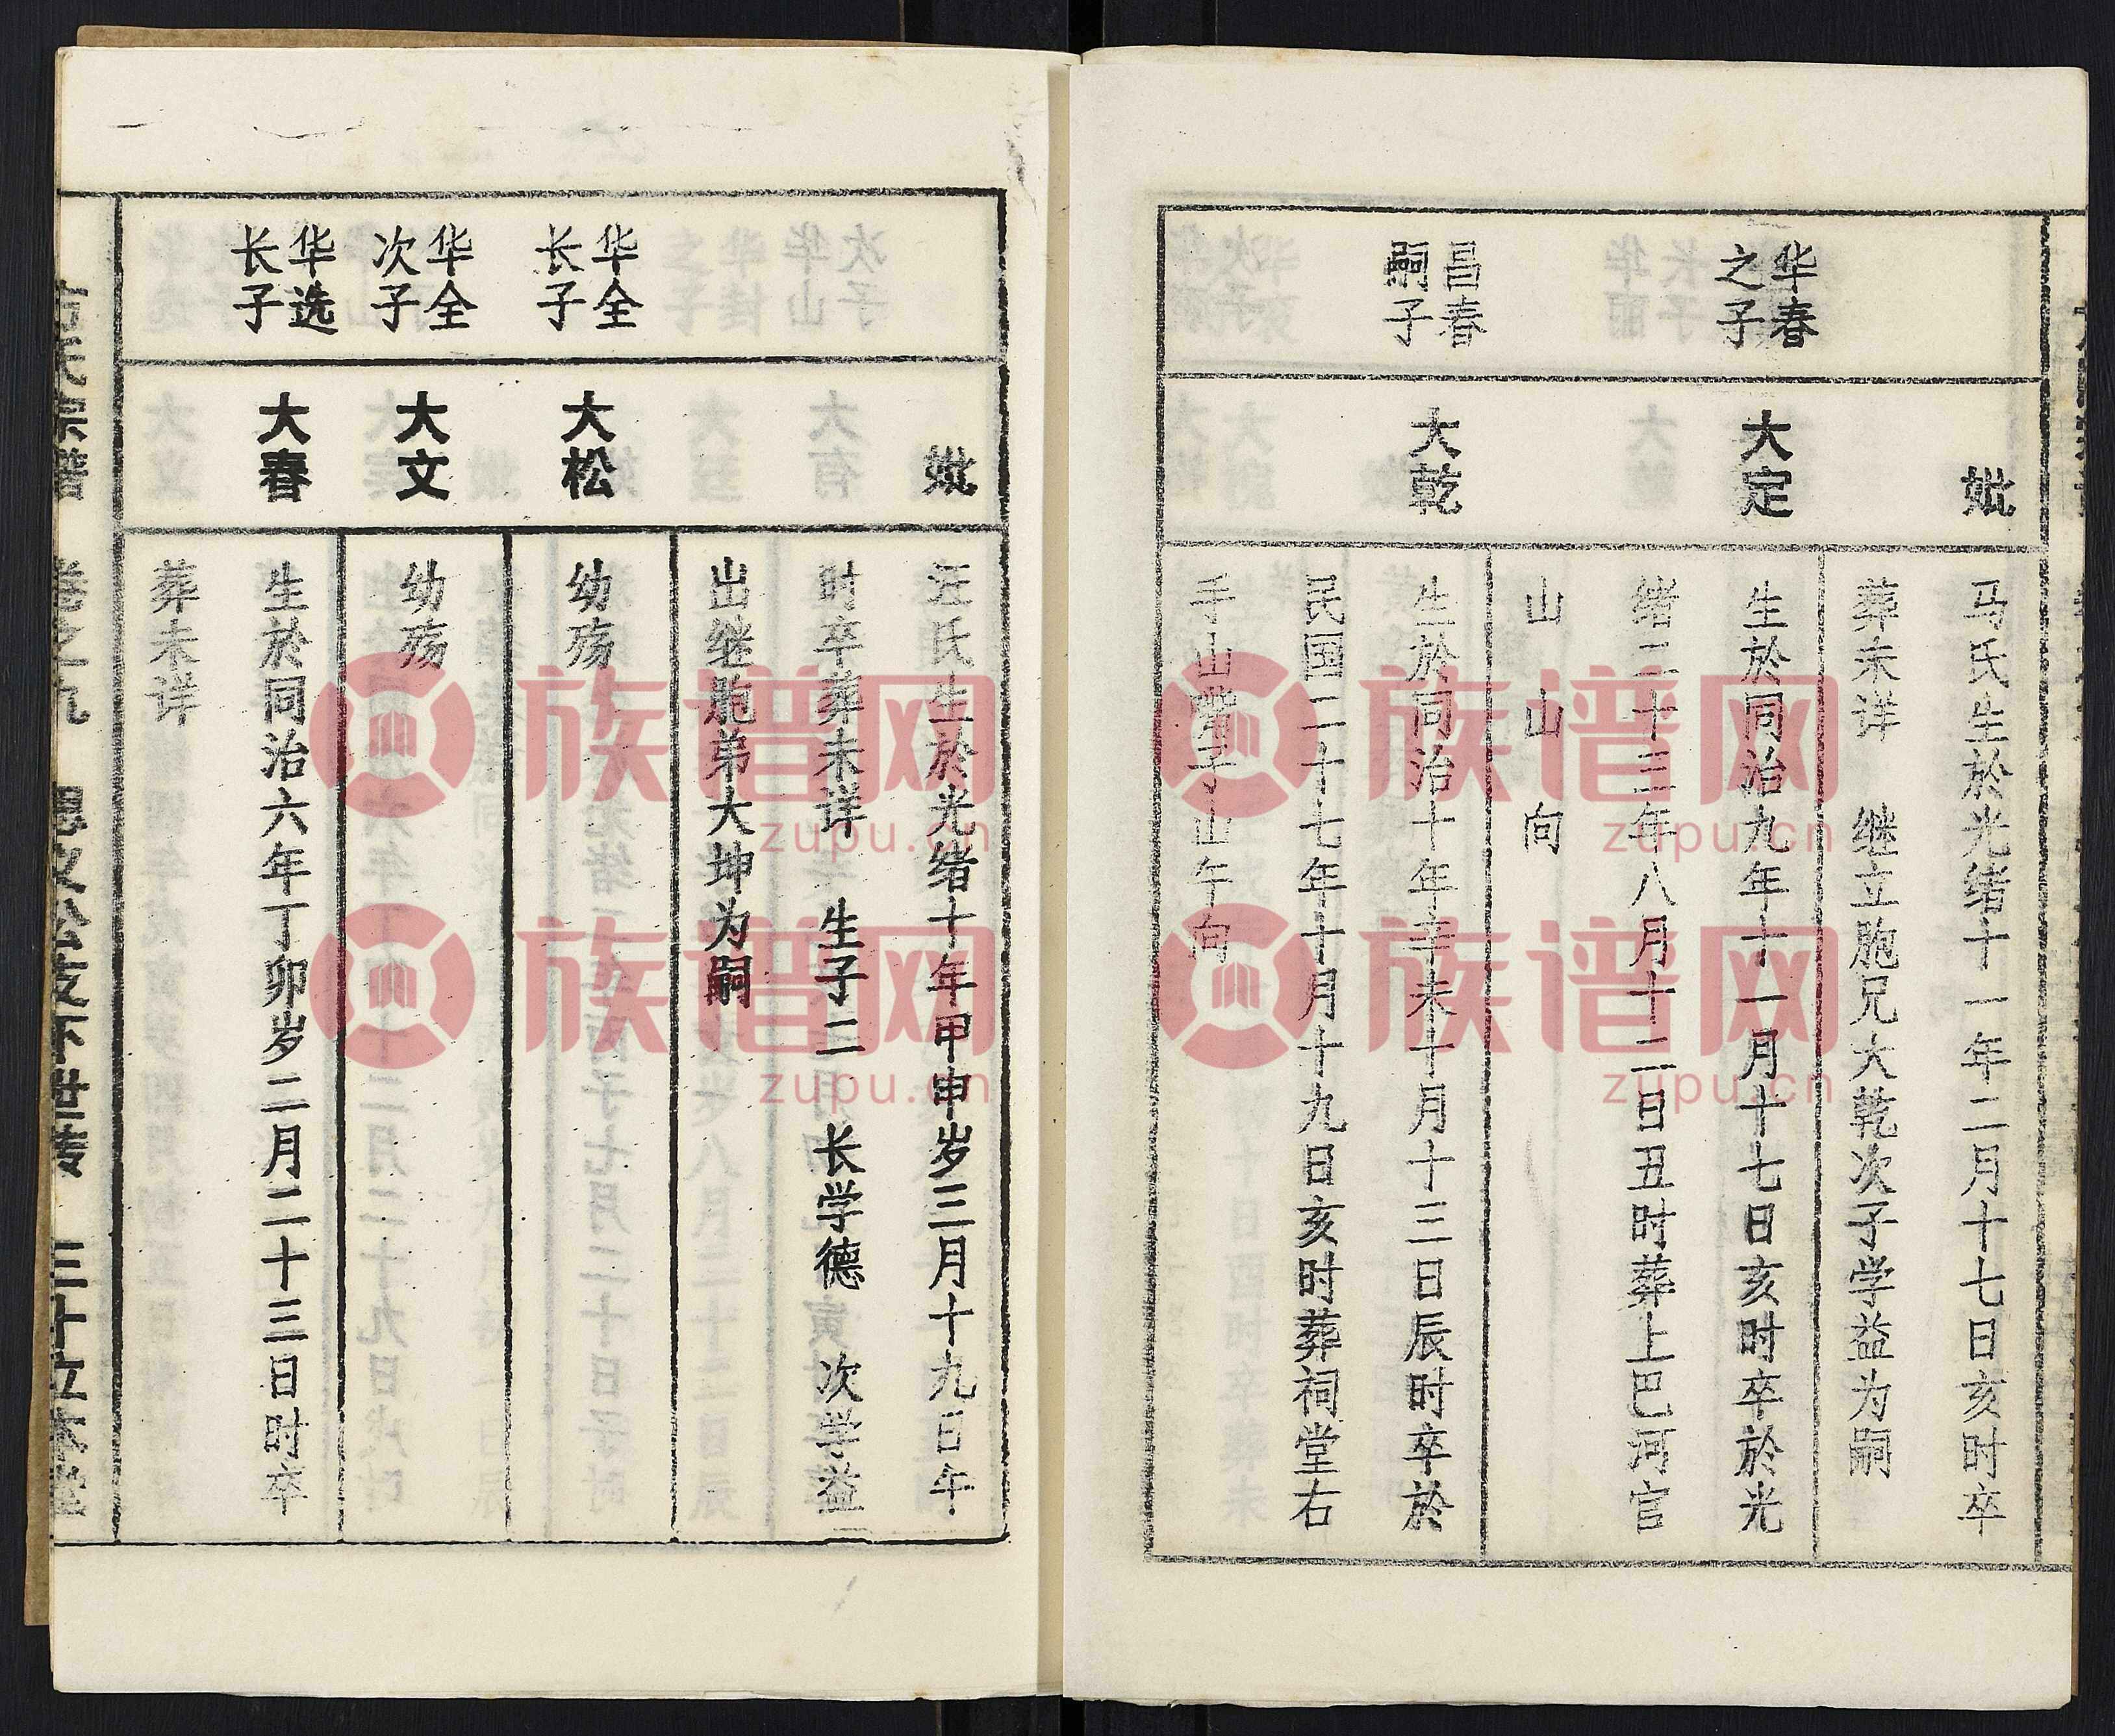 妣
马氏生於光绪十一年二月十七日亥时卒
葬未详 继立胞兄大乾次子学益为嗣
华春
之子
大定
生於同治九年十一月十七日亥时卒於光
绪二十三年八月十二日丑时葬上巴河官
山 山 向
昌春
嗣子
大乾
生於同治十年辛未十月十三日辰时卒於
民国二十七年十月十九日亥时葬祠堂右
手山嘴子山午向
妣
汪氏生於光绪十年甲申岁三月十九日午
时卒葬未详 生子二 长学德 次学益
出继胞弟大坤为嗣
华全
长子
大松
幼殇
华全
次子
大文
幼殇
华选
长子
大春
生於同治六年丁卯岁二月二十三日时卒
葬未详
氏宗谱 卷之九 思文公支下世表 三十五
族谱网
zupu.cn
族谱网
zupu.cn
族谱网
zupu.cn
族谱网
zupu.cn